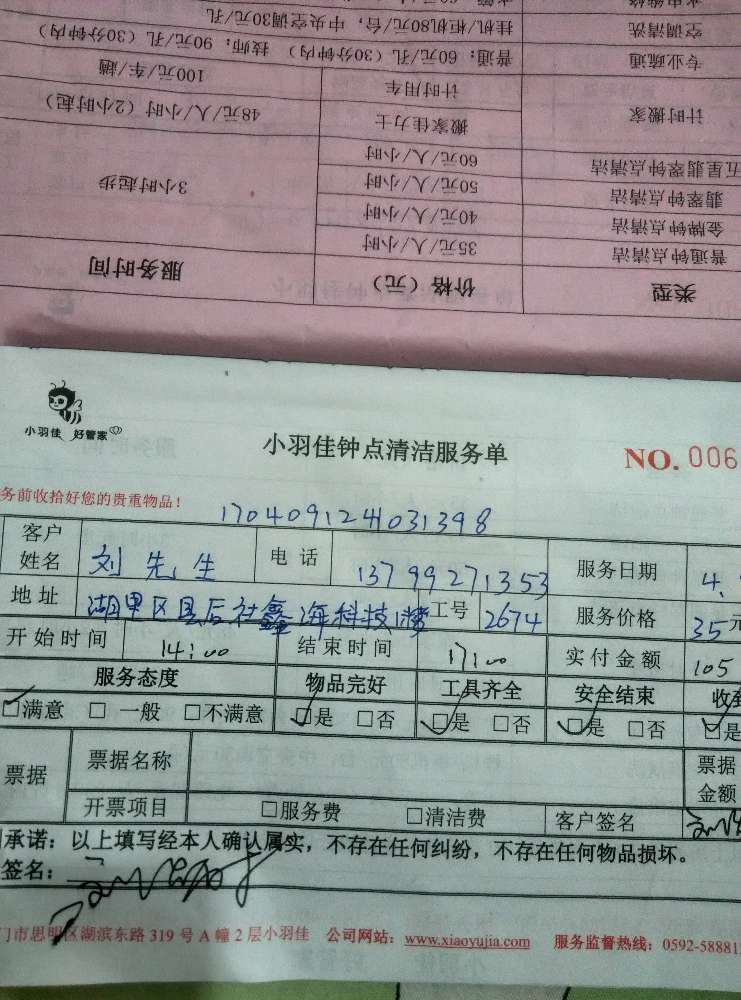 水电维修
空调清洗 挂机/柜机80元/台，中央空调30元/孔
专业疏通 普通：60元/孔（30分钟内） 技师：90元/孔（30分钟内）
计时搬家 计时用车 100元/车/趟
搬家佳力士 48元/人/小时（2小时起）
五星翡翠钟点清洁 60元/人/小时 3小时起步
翡翠钟点清洁 50元/人/小时
金牌钟点清洁 40元/人/小时
普通钟点清洁 35元/人/小时
类型 价格（元） 服务时间
小羽佳 好管家
小羽佳钟点清洁服务单
NO. 006
务前收拾好您的贵重物品！
170409124031398
客户姓名 刘先生 电话 13799271353 服务日期 4.
地址 湖里区县后社鑫海科技楼 工号 2674 服务价格 35元
开始时间 14:00 结束时间 17:00 实付金额 105
服务态度 物品完好 工具齐全 安全结束 收到
□满意 □一般 □不满意 □是 □否 □是 □否 □是 □否 □是
票据 票据名称 票据金额
开票项目 □服务费 □清洁费 客户签名
承诺：以上填写经本人确认属实，不存在任何纠纷，不存在任何物品损坏。
签名：
门市思明区湖滨东路319号A幢2层小羽佳 公司网站：www.xiaoyujia.com 服务监督热线：0592-58881